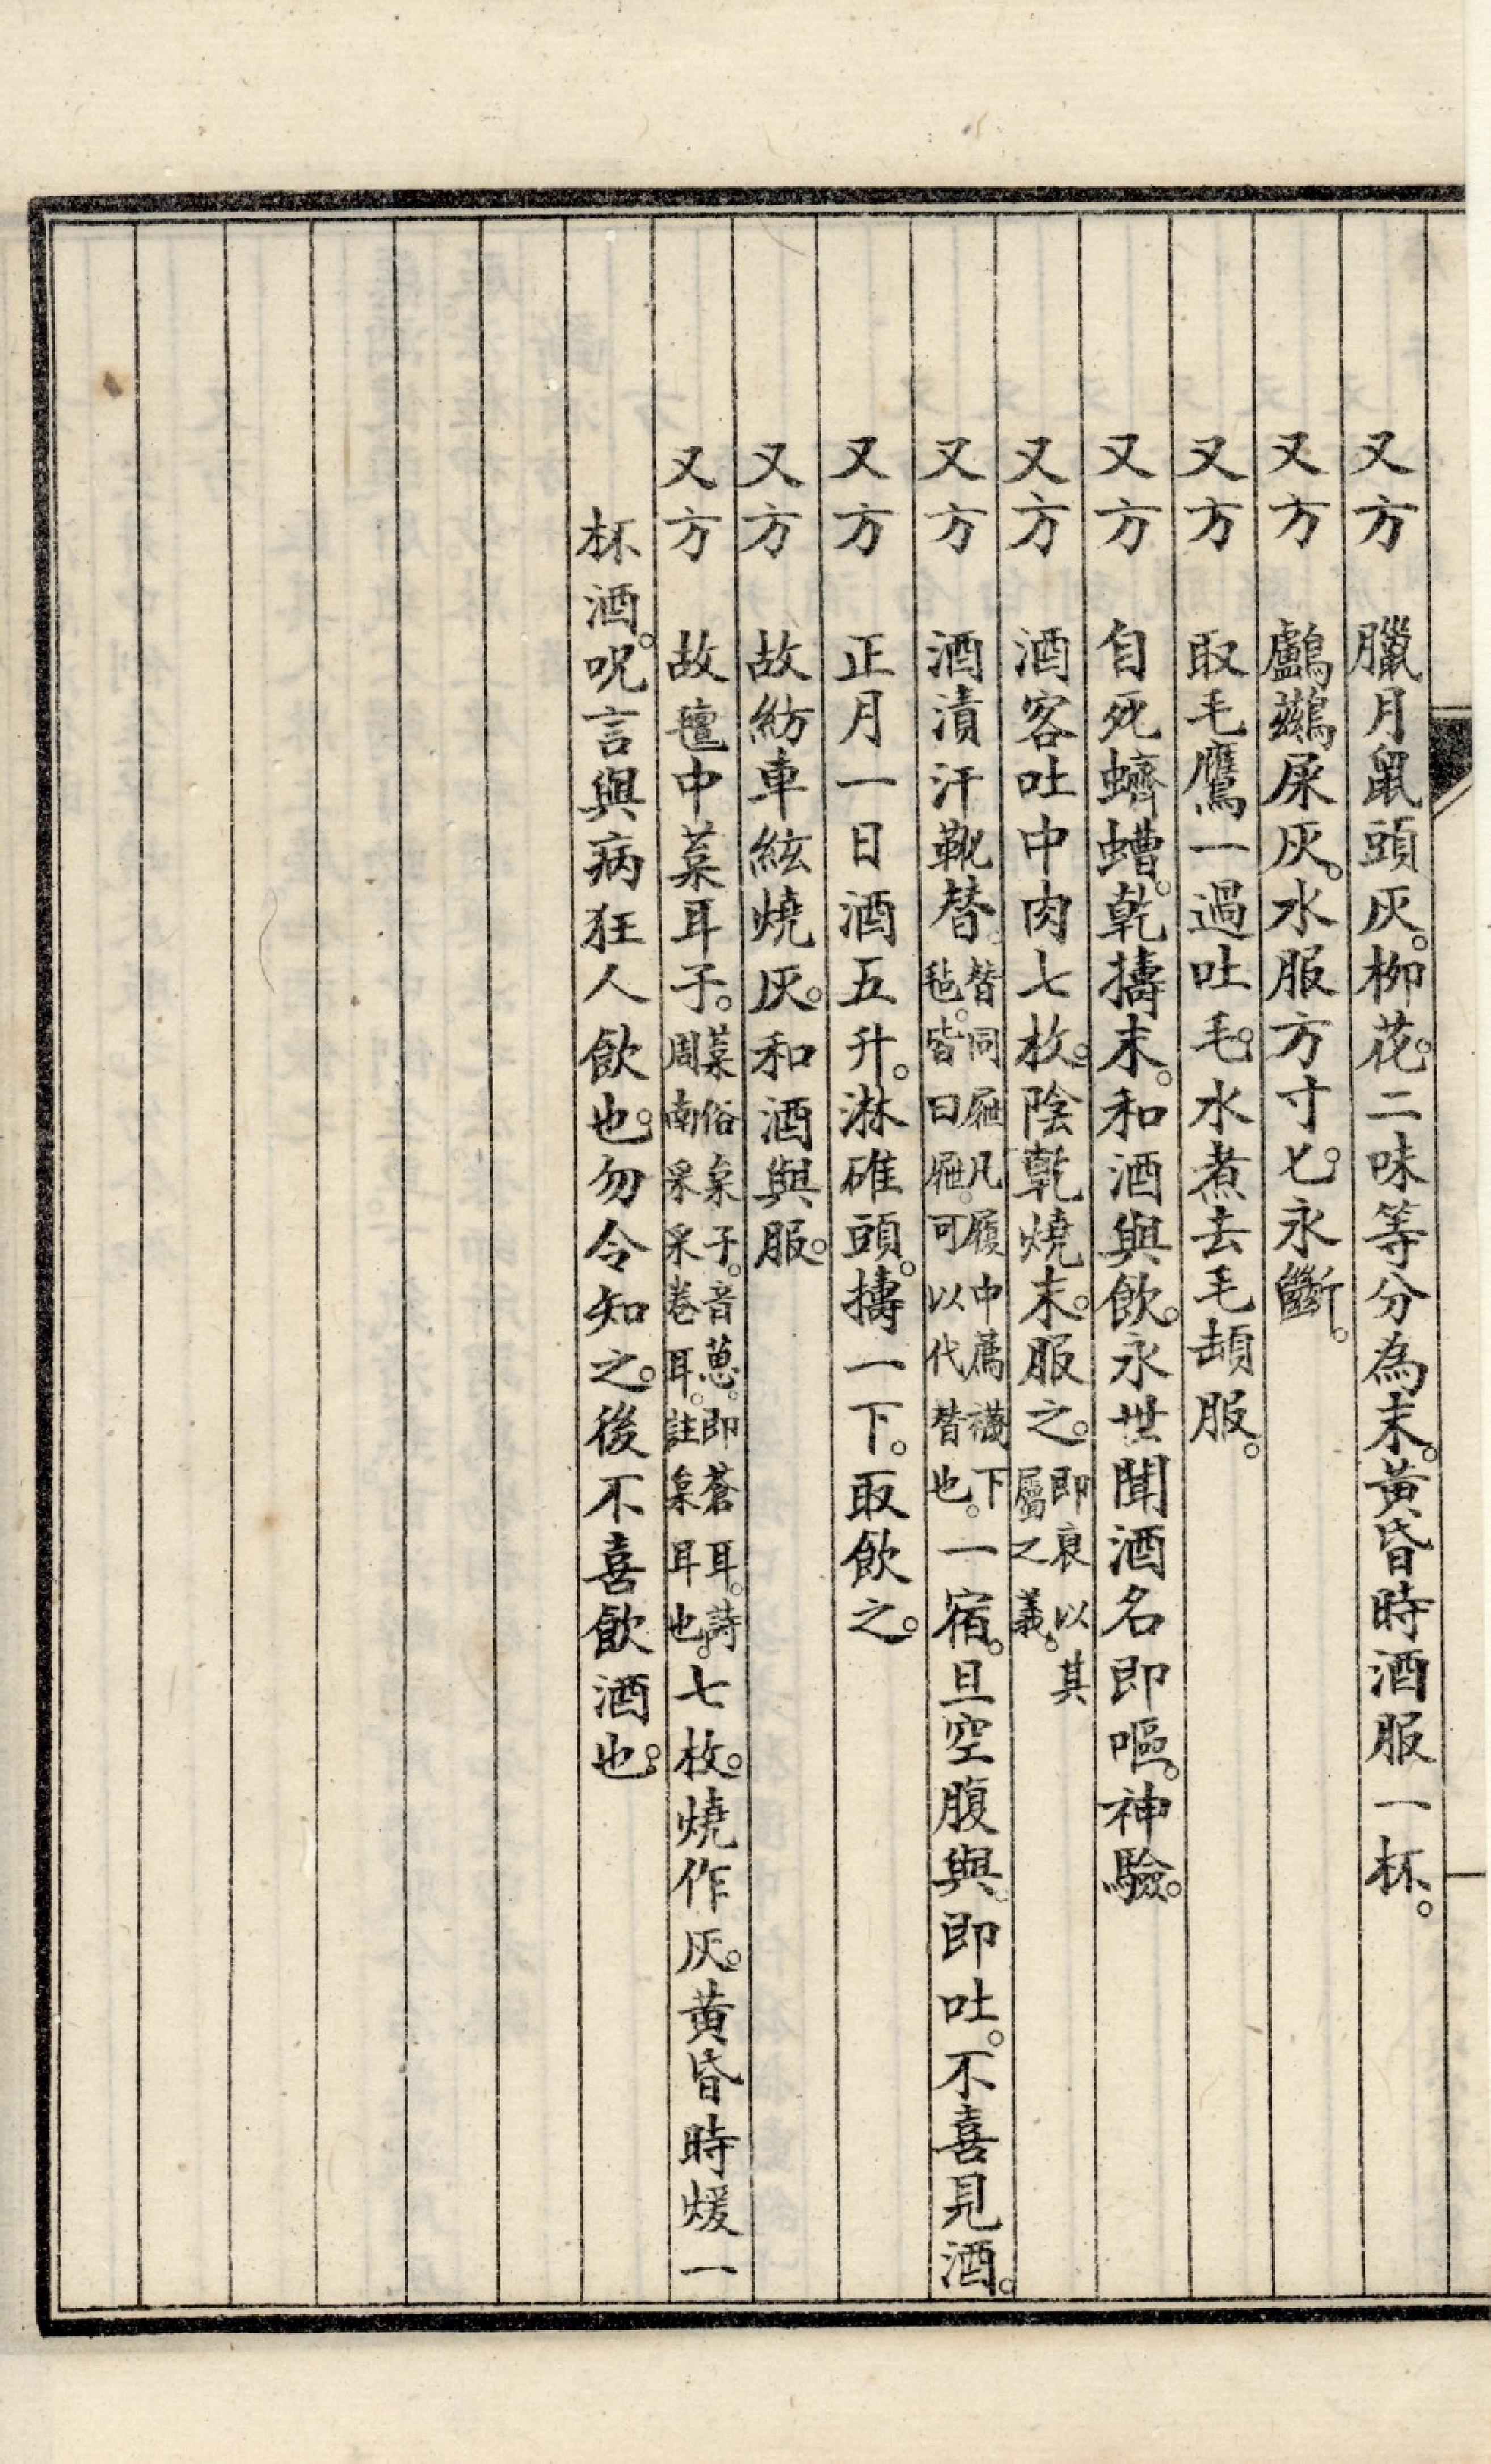 又方 臘月鼠頭灰。柳花。二味等分為末。黃昏時酒服一杯。
又方 鸕鷀屎灰。水服方寸匕。永斷。
又方 取毛鷹一過吐毛。水煮去毛頓服。
又方 自死蠐螬。乾擣末。和酒與飲。永世聞酒名即嘔。神驗。
又方 酒客吐中肉七枚。陰乾燒末。服之。即衰以其屬之義。
又方 酒漬汗靴替。替同屜凡履中薦襪下毡。皆曰屜。可以代替也。一宿。旦空腹與。即吐。不喜見酒。
又方 正月一日酒五升。淋碓頭。擣一下。取飲之。
又方 故紡車絃燒灰。和酒與服。
又方 故氊中葈耳子。葈俗枲子。音葸。即蒼耳。詩周南采采卷耳。註枲耳也。七枚。燒作灰。黃昏時煖一
杯酒。呪言與病狂人飲也。勿令知之。後不喜飲酒也。